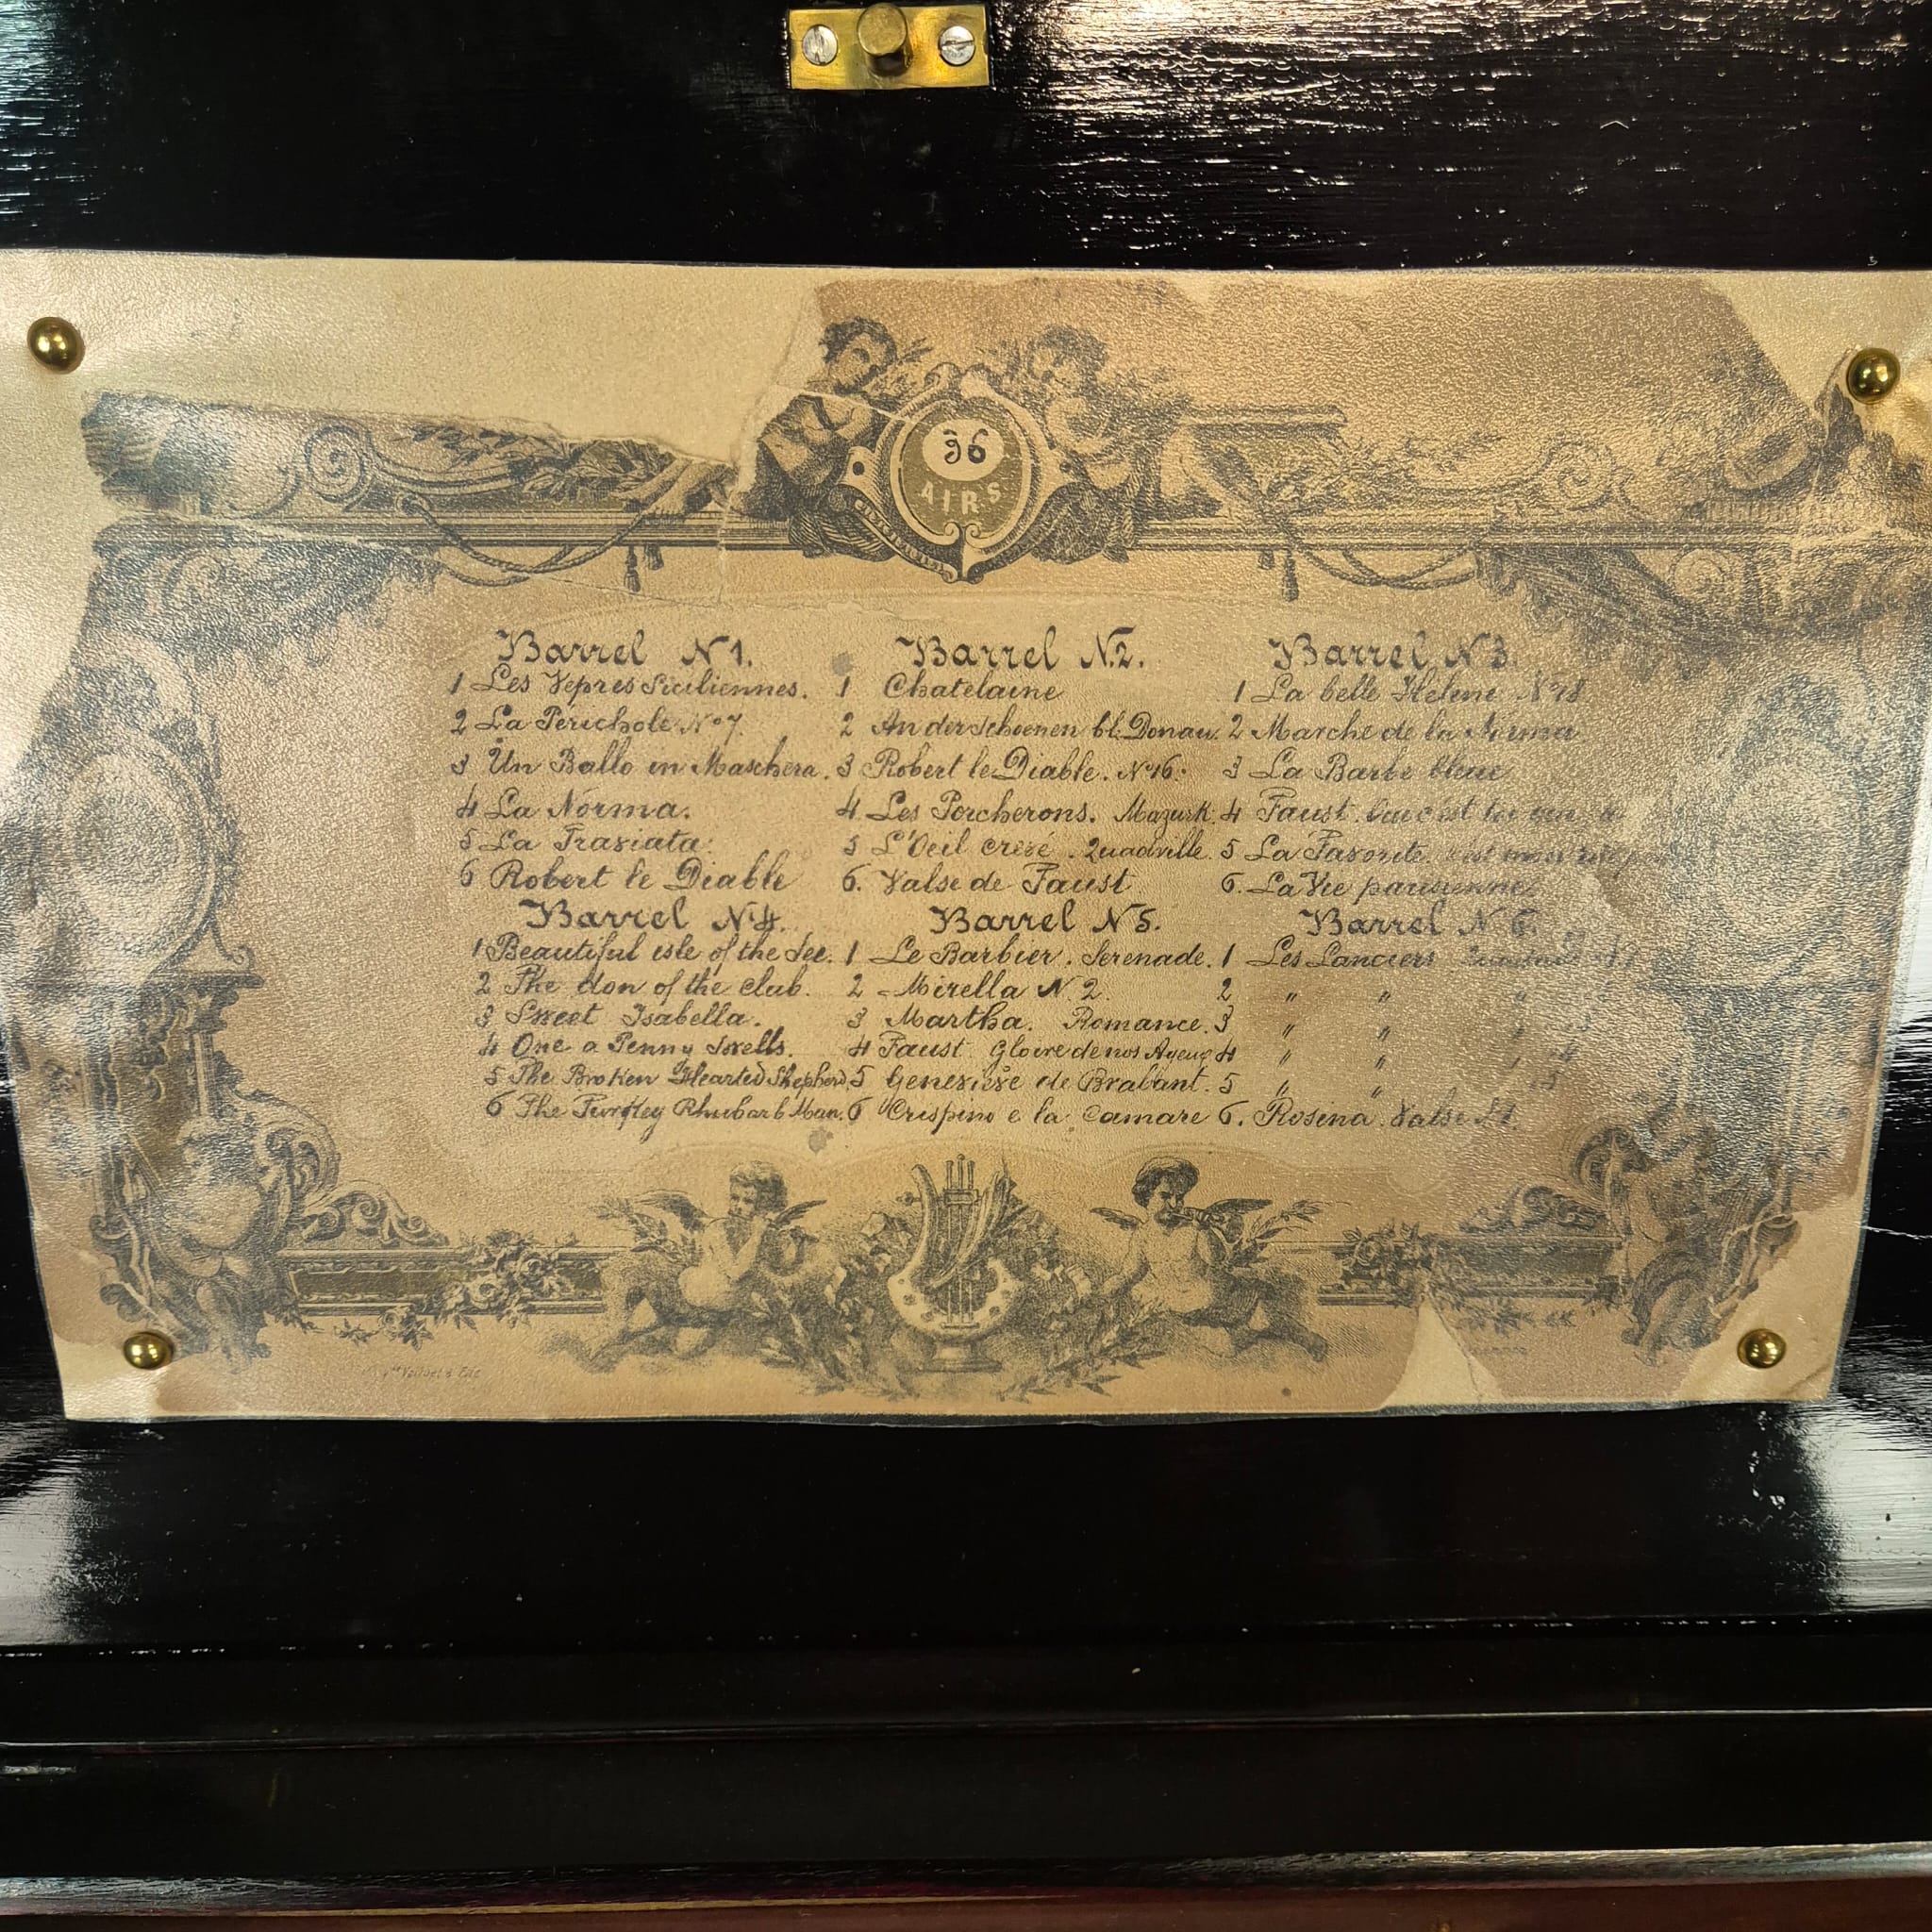 36
AIRS
Barrel N 1.
1 Les Vepres Siciliennes.
2 La Perichole N° 7.
3 Un Ballo in Maschera.
4 La Norma.
5 La Traviata.
6 Robert le Diable
Barrel N.2.
1 Chatelaine
2 An der schoenen bl. Donau.
3 Robert le Diable. N° 16.
4 Les Porcherons. Mazurk.
5 L'Oeil crevé. Quadrille.
6. Valse de Faust
Barrel N 3.
1 La belle Helene N° 18
2 Marche de la Norma
3 La Barbe bleue
4 Faust.
5 La Favorite.
6. La Vie parisienne
Barrel N 4.
1 Beautiful isle of the See.
2 The don of the club.
3 Sweet Isabella.
4 One a Penny Swells.
5 The Broken Hearted Shepherd
6 The Turkey Rhubarb Man.
Barrel N 5.
1 Le Barbier. Serenade.
2 Mirella N. 2.
3 Martha. Romance.
4 Faust Gloire de nos Ayeux
5 Genevieve de Brabant.
6 Crispino e la Comare
Barrel N 6.
1 Les Lanciers
2 " " "
3 " "
4 " "
5 " "
6. Rosina. Valse